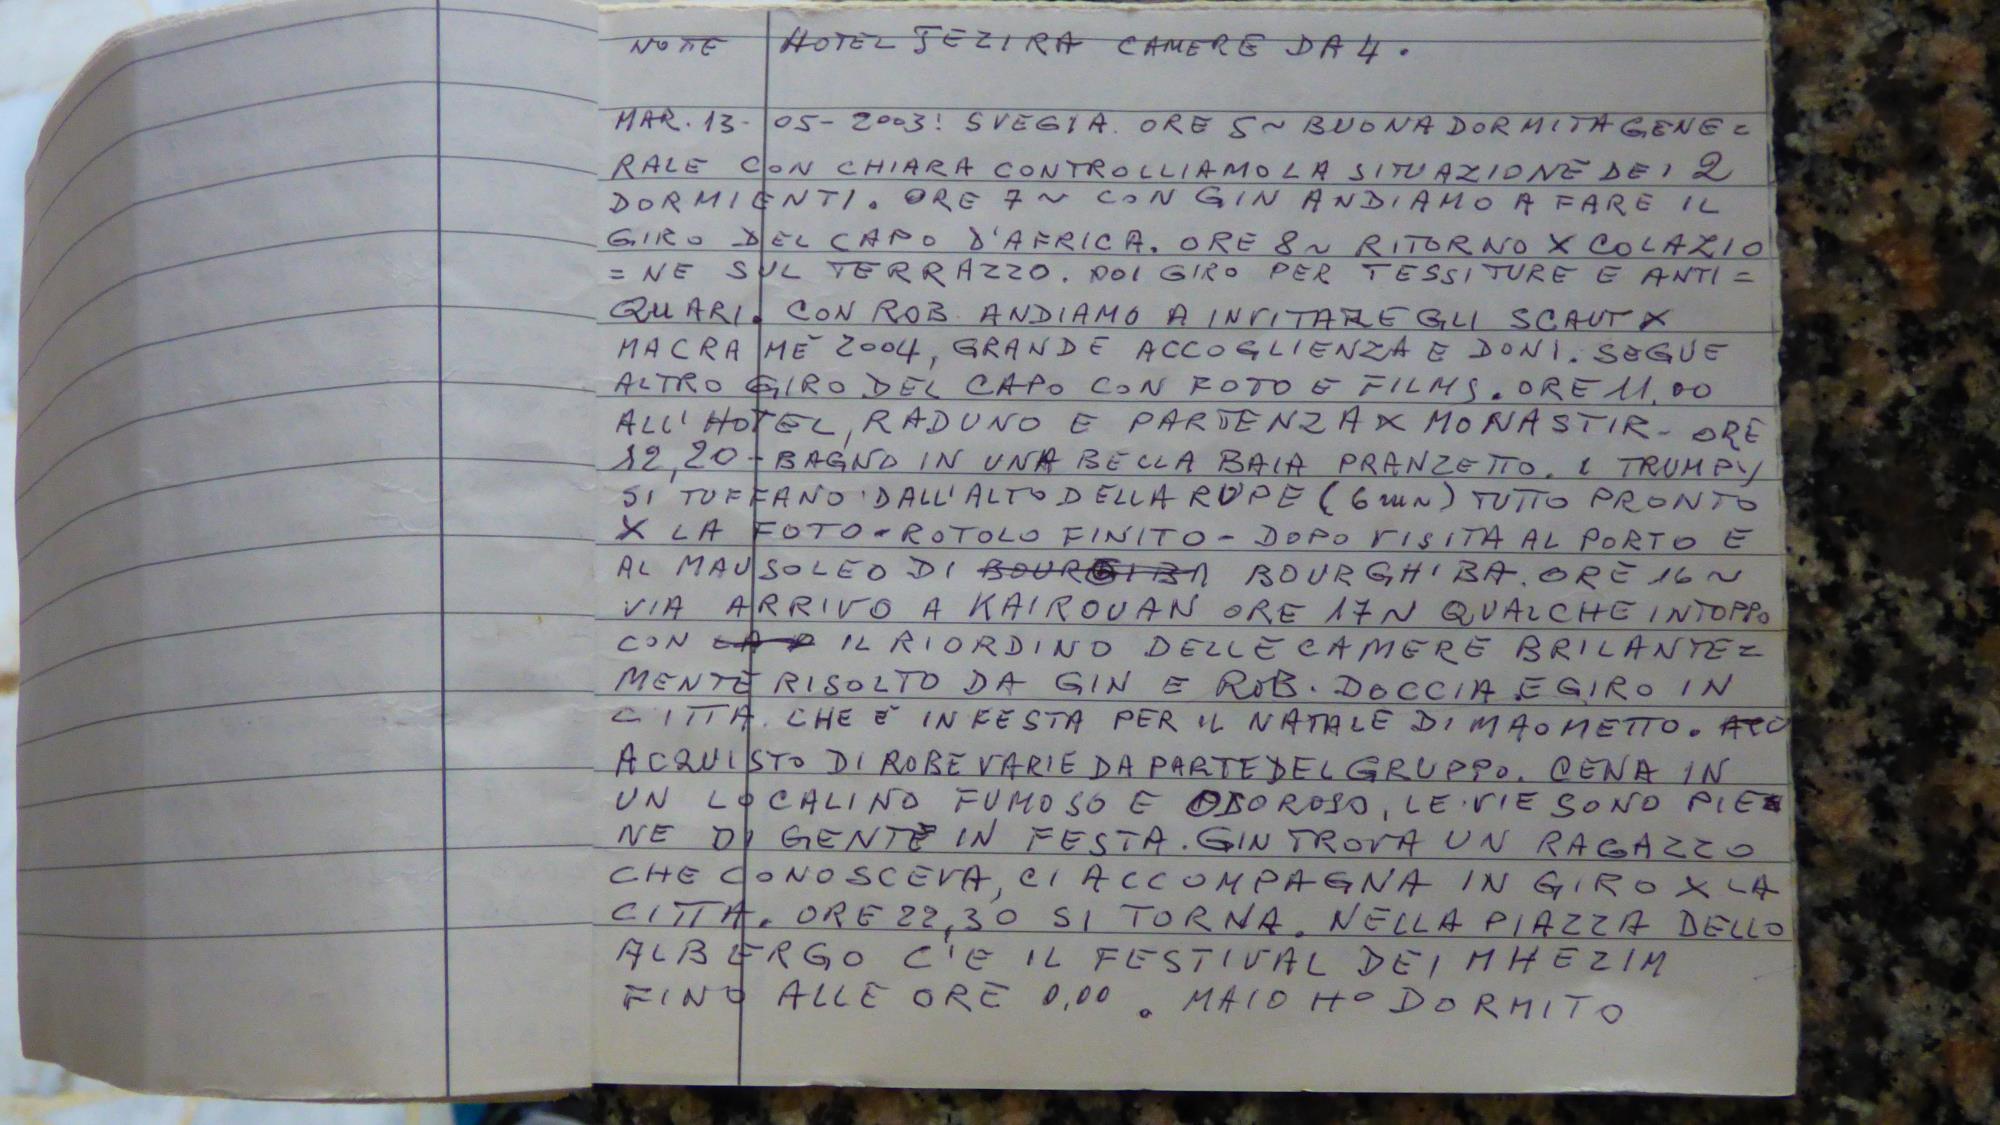 NOTTE HOTEL JEZIRA CAMERE DA 4.
MAR. 13-05-2003! SVEGIA. ORE 5~ BUONA DORMITA GENE=
RALE CON CHIARA CONTROLLIAMO LA SITUAZIONE DEI 2
DORMIENTI. ORE 7~ CON GIN ANDIAMO A FARE IL
GIRO DEL CAPO D'AFRICA. ORE 8~ RITORNO X COLAZIO
=NE SUL TERRAZZO. POI GIRO PER TESSITURE E ANTI=
QUARI. CON ROB. ANDIAMO A INVITARE GLI SCAUT X
MACRAMÈ 2004, GRANDE ACCOGLIENZA E DONI. SEGUE
ALTRO GIRO DEL CAPO CON FOTO E FILMS. ORE 11.00
ALL'HOTEL, RADUNO E PARTENZA X MONASTIR - ORE
12,20 - BAGNO IN UNA BELLA BAIA PRANZETTO. I TRUMPY
SI TUFFANO DALL'ALTO DELLA RUPE (6 mn) TUTTO PRONTO
X LA FOTO - ROTOLO FINITO - DOPO VISITA AL PORTO E
AL MAUSOLEO DI BOURGIBA BOURGHIBA. ORE 16~
VIA ARRIVO A KAIROUAN ORE 17~ QUALCHE INTOPPO
CON IL RIORDINO DELLE CAMERE BRILANTE=
MENTE RISOLTO DA GIN E ROB. DOCCIA E GIRO IN
CITTA. CHE È IN FESTA PER IL NATALE DI MAOMETTO.
ACQUISTO DI ROBE VARIE DA PARTE DEL GRUPPO. CENA IN
UN LOCALINO FUMOSO E ODOROSO, LE VIE SONO PIE=
NE DI GENTE IN FESTA. GIN TROVA UN RAGAZZO
CHE CONOSCEVA, CI ACCOMPAGNA IN GIRO X LA
CITTA. ORE 22,30 SI TORNA. NELLA PIAZZA DELLO
ALBERGO C'E IL FESTIVAL DEI MHEZIM
FINO ALLE ORE 0,00. MA IO HO DORMITO